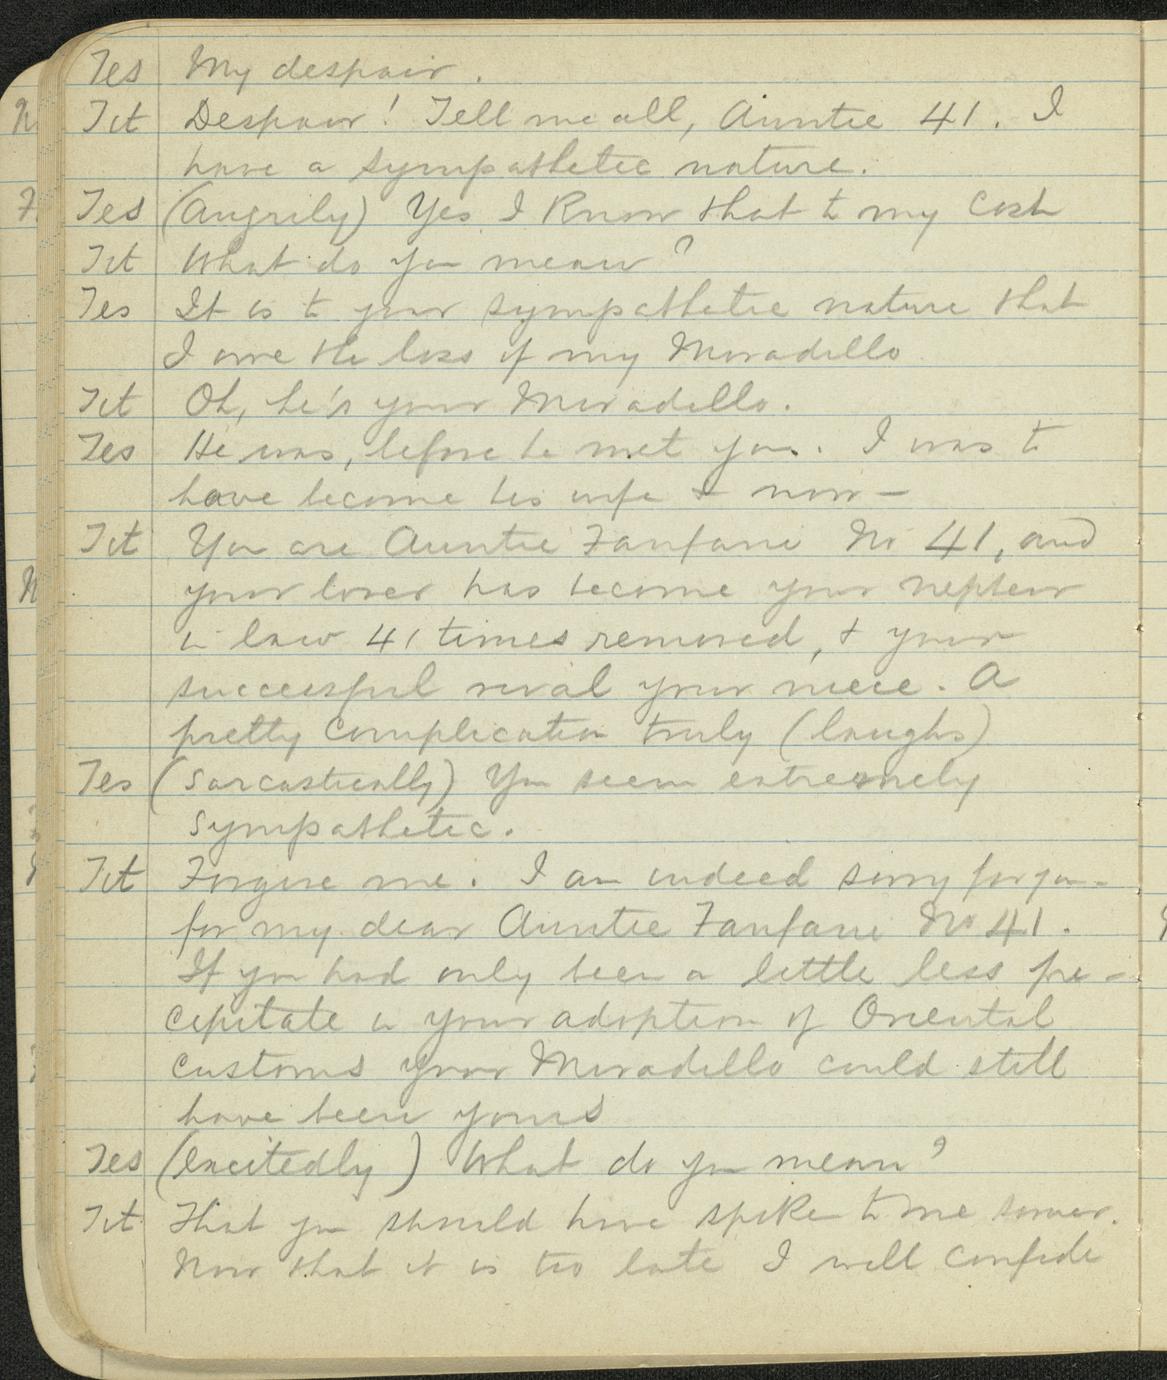 Tes My despair.
Tit Despair! Tell me all, Auntie 41. I
have a sympathetic nature.
Tes (Angrily) Yes I know that to my cost
Tit What do you mean?
Tes It is to your sympathetic nature that
I owe the loss of my Miradillo
Tit Oh, he's your Miradillo.
Tes He was, before he met you. I was to
have become his wife & now —
Tit You are Auntie Fanfani No 41, and
your lover has become your nephew
in law 41 times removed, & your
successful rival your niece. A
pretty complication truly (laughs)
Tes (Sarcastically) You seem extremely
sympathetic.
Tit Forgive me. I am indeed sorry for you -
for my dear Auntie Fanfani No 41.
If you had only been a little less pre-
cipitate in your adoption of Oriental
customs your Miradillo could still
have been yours
Tes (excitedly) What do you mean?
Tit That you should have spoken to me sooner.
Now that it is too late I will confide